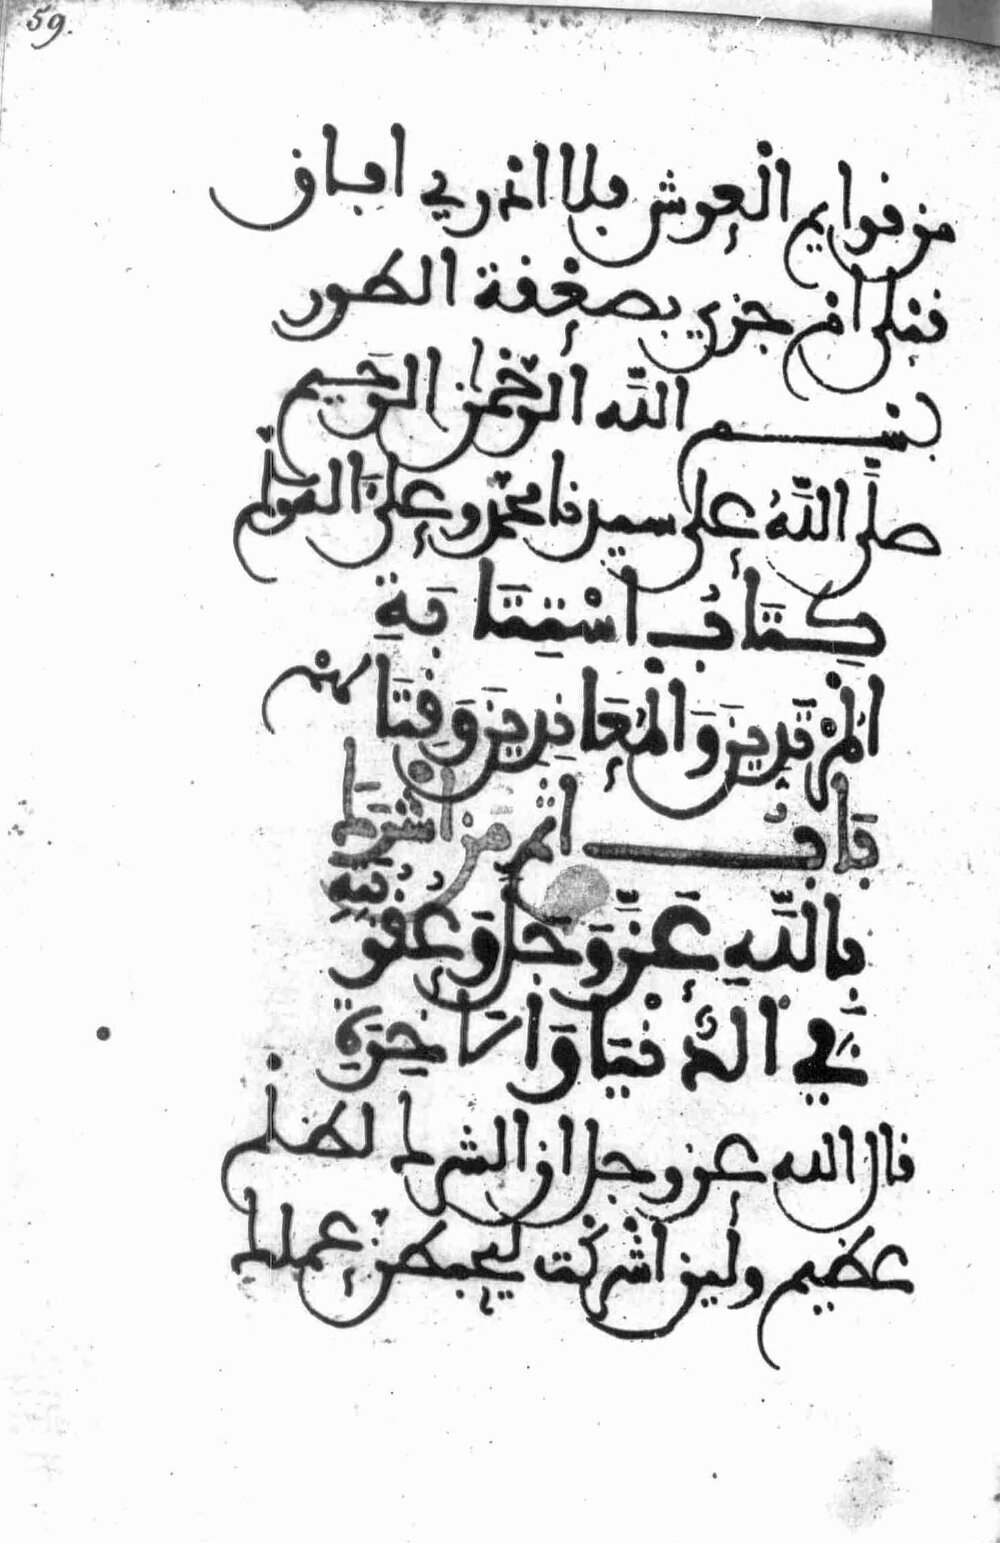 59.
من قوايم العرش فلا ادري افاق
قبلي ام جزي بصعقة الطور
بسم الله الرحمن الرحيم
صلى الله على سيدنا محمد وعلى اله وسلم
كِتَابُ اسْتِتَابَةِ
الْمُرْتَدِّينَ وَالْمُعَانِدِينَ وَقِتَالهم
بَابُ اثم مَن اشْرَكَ
بِاللَّهِ عَزَّ وَجَلَّ وَعُقُوبَتِهِ
فِي الدُّنْيَا وَالاخِرَةِ
قال الله عز وجل ان الشرك لظلم
عظيم ولين اشركت ليحبطن عملك